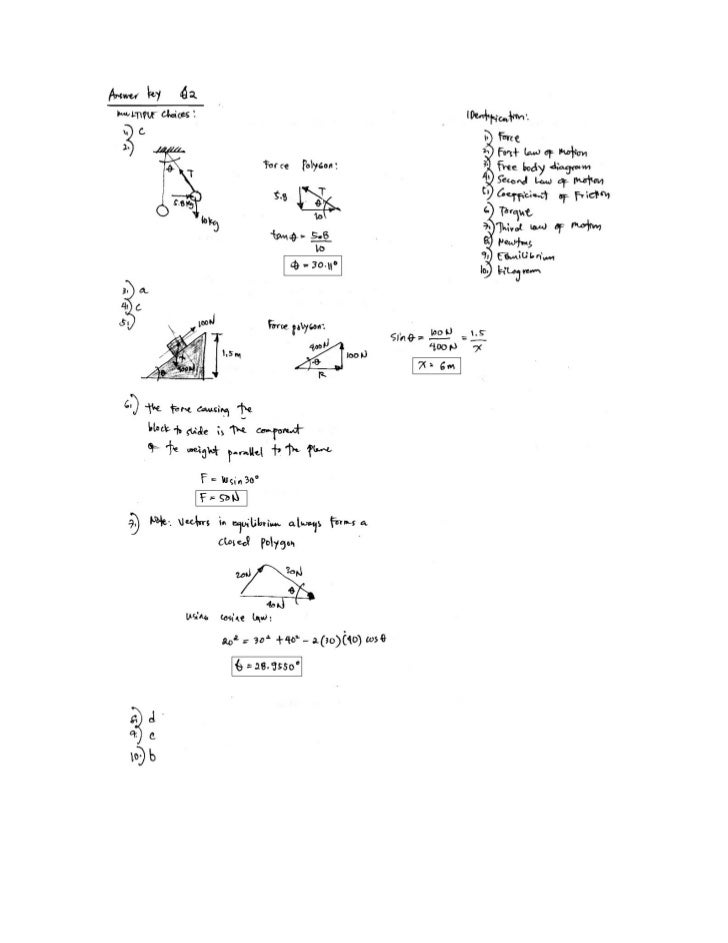 Answer key Q2
MULTIPLE Choices:
1.) c
2.)
θ
T
5.8 kg
10 kg
Force Polygon:
5.8
T
θ
10
tan θ = 5.8
10
θ = 30.11°
3.) a
4.) c
5.)
100N
400N
θ
1.5m
Force polygon:
400N
100N
θ
R
sin θ = 100 N = 1.5
400 N x
x = 6m
6.) the force causing the
block to slide is the component
of the weight parallel to the plane
F = W sin 30°
F = 50N
7.) Note: Vectors in equilibrium always forms a
closed polygon
20N
30N
θ
40N
using cosine law:
20² = 30² + 40² - 2(30)(40) cos θ
θ = 28.9550°
8.) d
9.) c
10.) b
Identification:
1.) Force
2.) First Law of Motion
3.) Free body diagram
4.) Second Law of Motion
5.) Coefficient of Friction
6.) Torque
7.) Third Law of Motion
8.) Newtons
9.) Equilibrium
10.) Kilogram